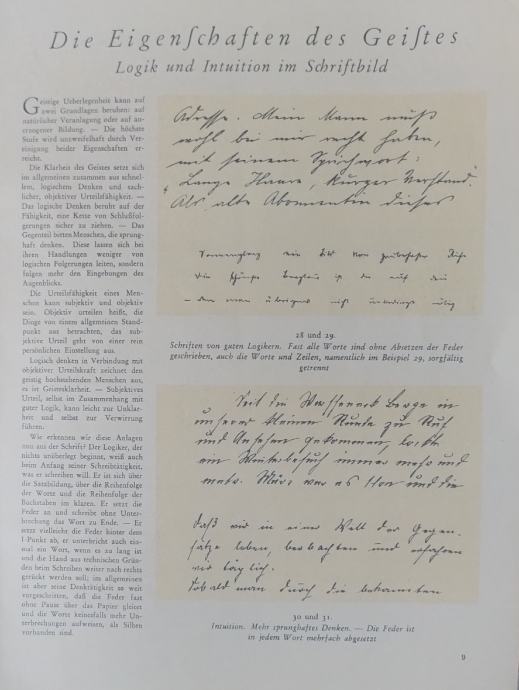 Die Eigenſchaften des Geiſtes
Logik und Intuition im Schriftbild
Geistige Ueberlegenheit kann auf
zwei Grundlagen beruhen: auf
natürlicher Veranlagung oder auf an-
erzogener Bildung. — Die höchste
Stufe wird unzweifelhaft durch Ver-
einigung beider Eigenschaften er-
reicht.
Die Klarheit des Geistes setzt sich
im allgemeinen zusammen aus schnel-
lem, logischem Denken und sach-
licher, objektiver Urteilsfähigkeit. —
Das logische Denken beruht auf der
Fähigkeit, eine Kette von Schlußfol-
gerungen sicher zu ziehen. — Das
Gegenteil bieten Menschen, die sprung-
haft denken. Diese lassen sich bei
ihren Handlungen weniger von
logischen Folgerungen leiten, sondern
folgen mehr den Eingebungen des
Augenblicks.
Die Urteilsfähigkeit eines Men-
schen kann subjektiv und objektiv
sein. Objektiv urteilen heißt, die
Dinge von einem allgemeinen Stand-
punkt aus betrachten, das sub-
jektive Urteil geht von einer rein
persönlichen Einstellung aus.
Logisch denken in Verbindung mit
objektiver Urteilskraft zeichnet den
geistig hochstehenden Menschen aus,
es ist Geistesklarheit. — Subjektives
Urteil, selbst im Zusammenhang mit
guter Logik, kann leicht zur Unklar-
heit und selbst zur Verwirrung
führen.
Wie erkennen wir diese Anlagen
nun aus der Schrift? Der Logiker, der
nichts unüberlegt beginnt, weiß auch
beim Anfang seiner Schreibtätigkeit,
was er schreiben will. Er ist sich über
die Satzbildung, über die Reihenfolge
der Worte und die Reihenfolge der
Buchstaben im klaren. Er setzt die
Feder an und schreibt ohne Unter-
brechung das Wort zu Ende. — Er
setzt vielleicht die Feder hinter dem
I-Punkt ab, er unterbricht auch ein-
mal ein Wort, wenn es zu lang ist
und die Hand aus technischen Grün-
den beim Schreiben weiter nach rechts
gerückt werden soll; im allgemeinen
ist aber seine Denktätigkeit so weit
vorgeschritten, daß die Feder fast
ohne Pause über das Papier gleitet
und die Worte keinesfalls mehr Un-
terbrechungen aufweisen, als Silben
vorhanden sind.
Adresse. Mein Mann muß
wohl bei mir recht haben,
mit seinem Sprichwort:
"Lange Haare, kurzer Verstand."
Als alte Abonnentin dieses
28 und 29.
Schriften von guten Logikern. Fast alle Worte sind ohne Absetzen der Feder
geschrieben, auch die Worte und Zeilen, namentlich im Beispiel 29, sorgfältig
getrennt
Seit die Berge in
unserer kleinen Runde zu Ruf
und Ansehen gekommen, lockt
ein Winterbesuch immer mehr und
mehr. war es Hor und die
daß wir in einer Welt der Gegen-
sätze leben, beobachten und erfahren
wir täglich.
Sobald man durch die bekannten
30 und 31.
Intuition. Mehr sprunghaftes Denken. — Die Feder ist
in jedem Wort mehrfach abgesetzt
9